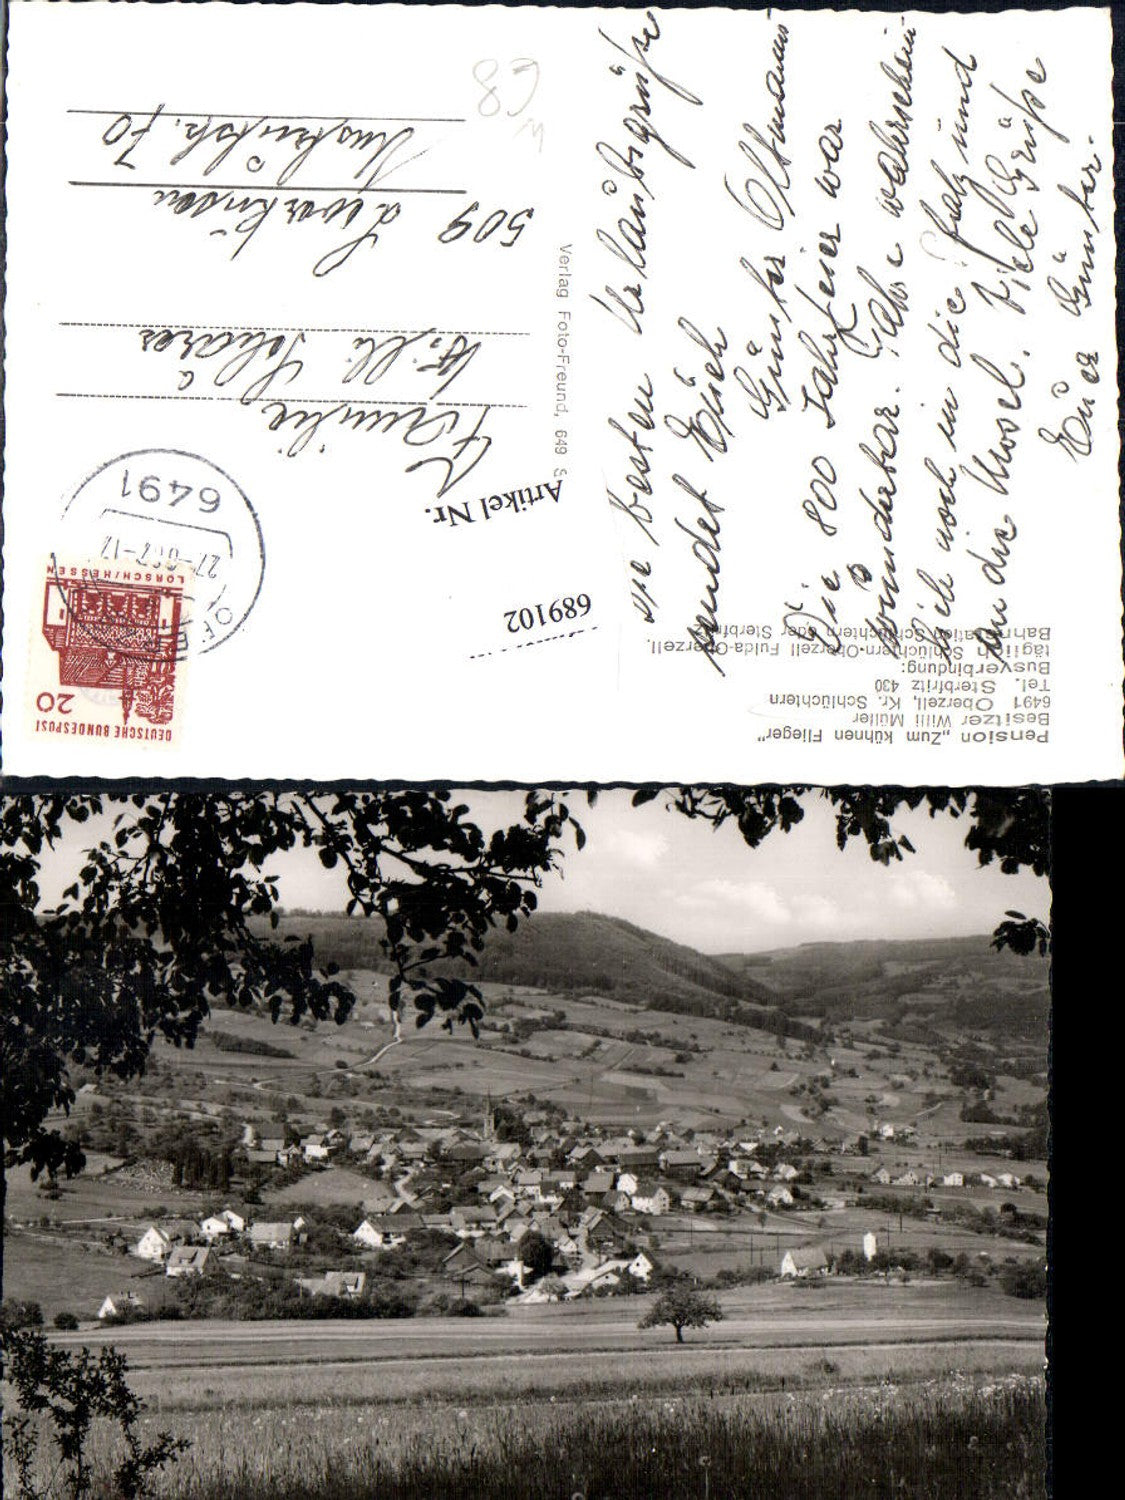 Pension „Zum kühnen Flieger"
Besitzer Willi Müller
6491 Oberzell, Kr. Schlüchtern
Tel. Sterbfritz 430
Busverbindung:
täglich Schlüchtern-Oberzell Fulda-Oberzell.
Bahnstation Schlüchtern oder Sterbfritz
Die besten Urlaubsgrüße
sendet Euch
Günter Oltmanns
Die 800 Jahrfeier war
wunderbar. Fahre wahrschein
lich noch in die Pfalz und
an die Mosel. Viele Grüße
Euer Günter.
Verlag Foto-Freund, 649 S
Artikel Nr.
689102
DEUTSCHE BUNDESPOST
20
LORSCH/HESSEN
6491
OBERZELL
Familie
Willi
509 Leverkusen
70